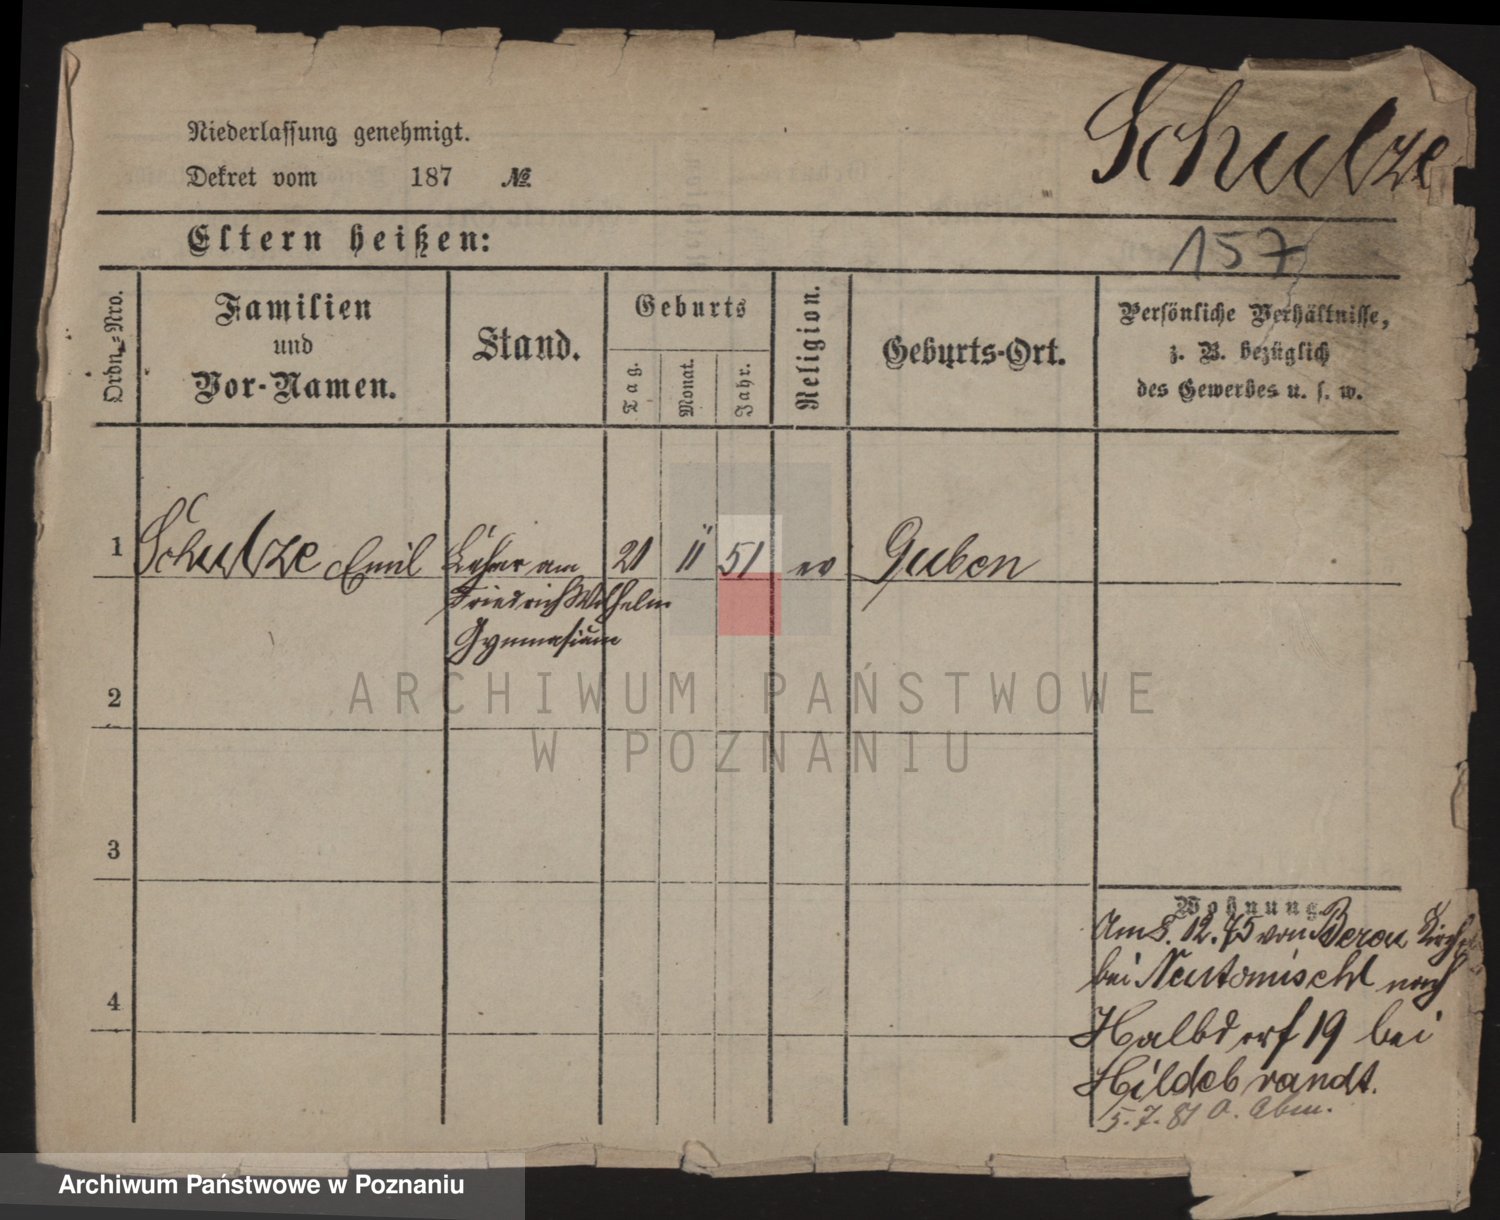 Niederlassung genehmigt.
Dekret vom 187 №
Schulze
Eltern heißen:
157
Ordn.-Nro.
Familien
und
Vor-Namen.
Stand.
Geburts
Tag.
Monat.
Jahr.
Religion.
Geburts-Ort.
Persönliche Verhältnisse,
z. B. bezüglich
des Gewerbes u. s. w.
1 Schulze Emil Lehrer am 21 11 51 ev Guben
Friedrich Wilhelm
Gymnasium
2
3
4
ARCHIWUM PAŃSTWOWE
W POZNANIU
Wohnung
Am 8. 12. 75 von
bei Neutomischl nach
Halbdorf 19 bei
Hildebrandt.
5. 7. 81
Archiwum Państwowe w Poznaniu